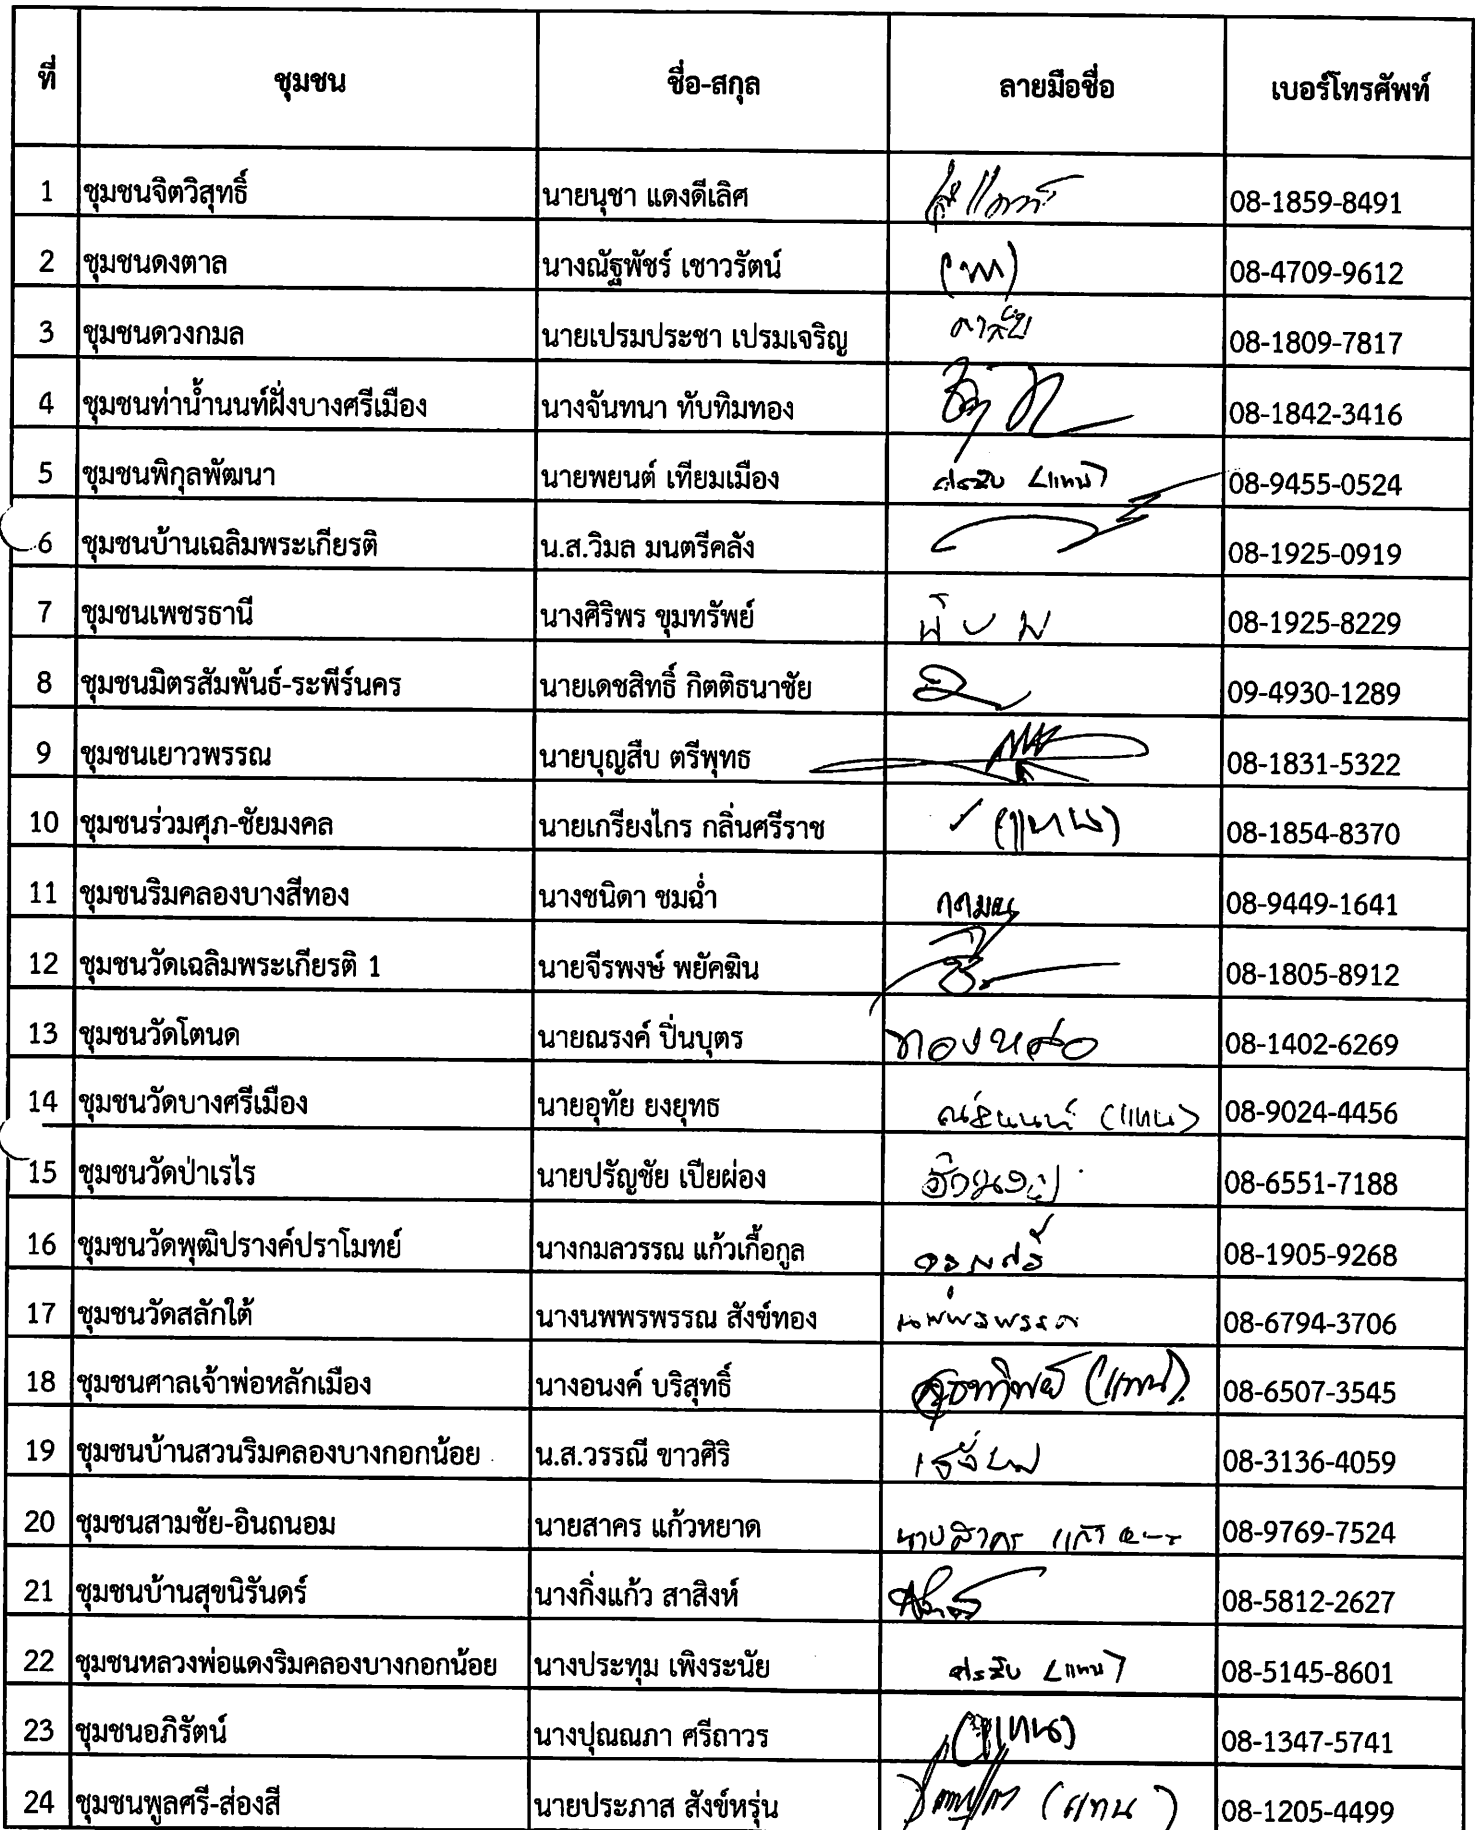 ที่ ชุมชน ชื่อ-สกุล ลายมือชื่อ เบอร์โทรศัพท์
1 ชุมชนจิตวิสุทธิ์ นายนุชา แดงดีเลิศ 08-1859-8491
2 ชุมชนดงตาล นางณัฐพัชร์ เชาวรัตน์ 08-4709-9612
3 ชุมชนดวงกมล นายเปรมประชา เปรมเจริญ 08-1809-7817
4 ชุมชนท่าน้ำนนท์ฝั่งบางศรีเมือง นางจันทนา ทับทิมทอง 08-1842-3416
5 ชุมชนพิกุลพัฒนา นายพยนต์ เทียมเมือง (แทน) 08-9455-0524
6 ชุมชนบ้านเฉลิมพระเกียรติ น.ส.วิมล มนตรีคลัง 08-1925-0919
7 ชุมชนเพชรธานี นางศิริพร ขุมทรัพย์ 08-1925-8229
8 ชุมชนมิตรสัมพันธ์-ระพีร์นคร นายเดชสิทธิ์ กิตติธนาชัย 09-4930-1289
9 ชุมชนเยาวพรรณ นายบุญสืบ ตรีพุทธ 08-1831-5322
10 ชุมชนร่วมศุภ-ชัยมงคล นายเกรียงไกร กลิ่นศรีราช (แทน) 08-1854-8370
11 ชุมชนริมคลองบางสีทอง นางชนิดา ชมฉ่ำ 08-9449-1641
12 ชุมชนวัดเฉลิมพระเกียรติ 1 นายจีรพงษ์ พยัคฆิน 08-1805-8912
13 ชุมชนวัดโตนด นายณรงค์ ปิ่นบุตร 08-1402-6269
14 ชุมชนวัดบางศรีเมือง นายอุทัย ยงยุทธ (แทน) 08-9024-4456
15 ชุมชนวัดป่าเรไร นายปรัญชัย เปียผ่อง 08-6551-7188
16 ชุมชนวัดพุฒิปรางค์ปราโมทย์ นางกมลวรรณ แก้วเกื้อกูล 08-1905-9268
17 ชุมชนวัดสลักใต้ นางนพพรพรรณ สังข์ทอง นพพรพรรณ 08-6794-3706
18 ชุมชนศาลเจ้าพ่อหลักเมือง นางอนงค์ บริสุทธิ์ (แทน) 08-6507-3545
19 ชุมชนบ้านสวนริมคลองบางกอกน้อย น.ส.วรรณี ขาวศิริ 08-3136-4059
20 ชุมชนสามชัย-อินถนอม นายสาคร แก้วหยาด นายสาคร 08-9769-7524
21 ชุมชนบ้านสุขนิรันดร์ นางกิ่งแก้ว สาสิงห์ 08-5812-2627
22 ชุมชนหลวงพ่อแดงริมคลองบางกอกน้อย นางประทุม เพิงระนัย (แทน) 08-5145-8601
23 ชุมชนอภิรัตน์ นางปุณณภา ศรีถาวร (แทน) 08-1347-5741
24 ชุมชนพูลศรี-ส่องสี นายประภาส สังข์หรุ่น (แทน) 08-1205-4499